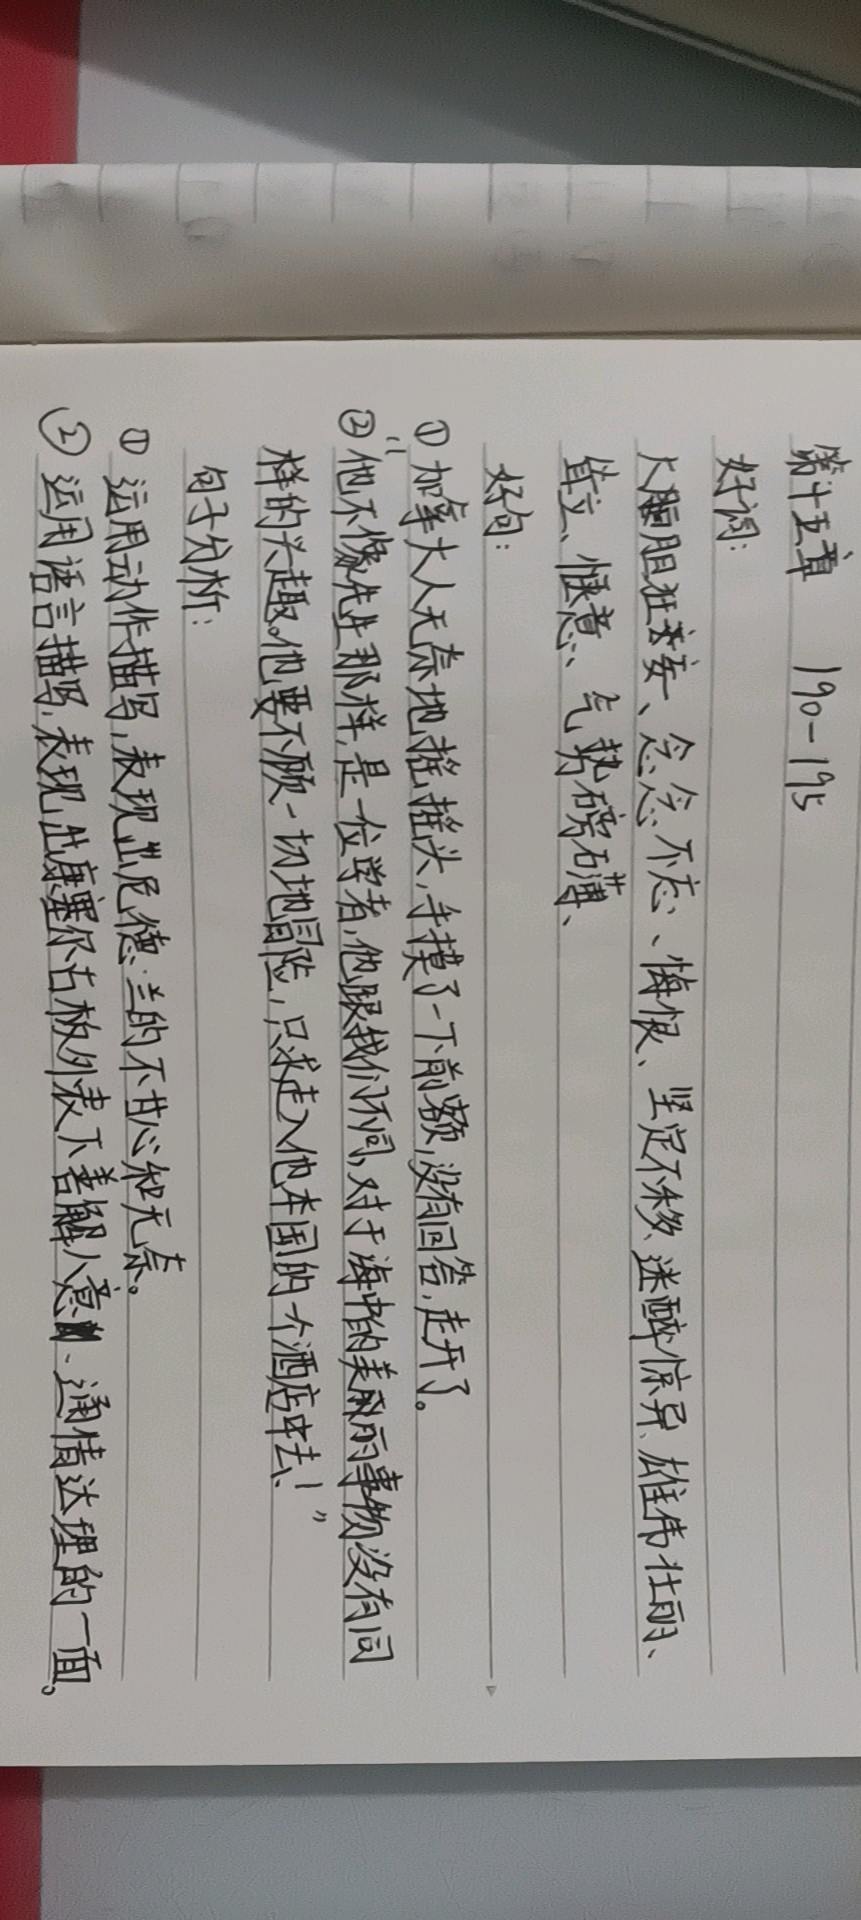 第十五章 190-195
好词:
大胆狂妄、念念不忘、悔恨、坚定不移、迷醉惊异、雄伟壮丽、
耸立、惬意、气势磅礴、
好句:
①加拿大人无奈地摇摇头,手摸了一下前额,没有回答,走开了。
②“他不像先生那样,是一位学者,他跟我们不同,对于海中的美丽事物没有同
样的兴趣。他要不顾一切地冒险,只求走入他本国的一个酒店中去!”
句子分析:
①运用动作描写,表现出尼德·兰的不甘心和无奈。
②运用语言描写,表现出康塞尔古板外表下善解人意、通情达理的一面。